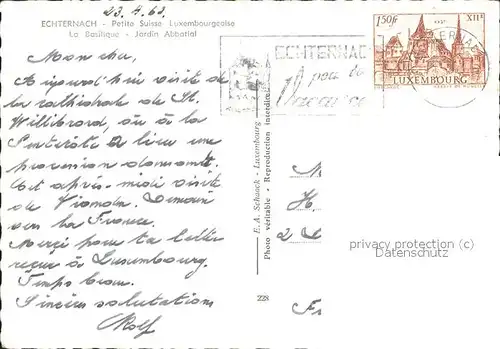 23.4.63.
ECHTERNACH - Petite Suisse Luxembourgeoise
La Basilique - Jardin Abbatial
Mon cher,
Aujourd'hui visite de
la cathédrale de St.
Willibrord, où à la
Pentecôte a lieu une
procession dansante.
Cet après-midi visite
de Vianden. Demain
vers la France.
Merçi pour ta lettre
reçue à Luxembourg.
Temps beau.
Sincères salutations
Rolf
E. A. Schaack - Luxembourg
Photo véritable - Reproduction interdite
228
ECHTERNACH
1.50fr
XIIe
LUXEMBOURG
2
privacy protection (c)
Datenschutz